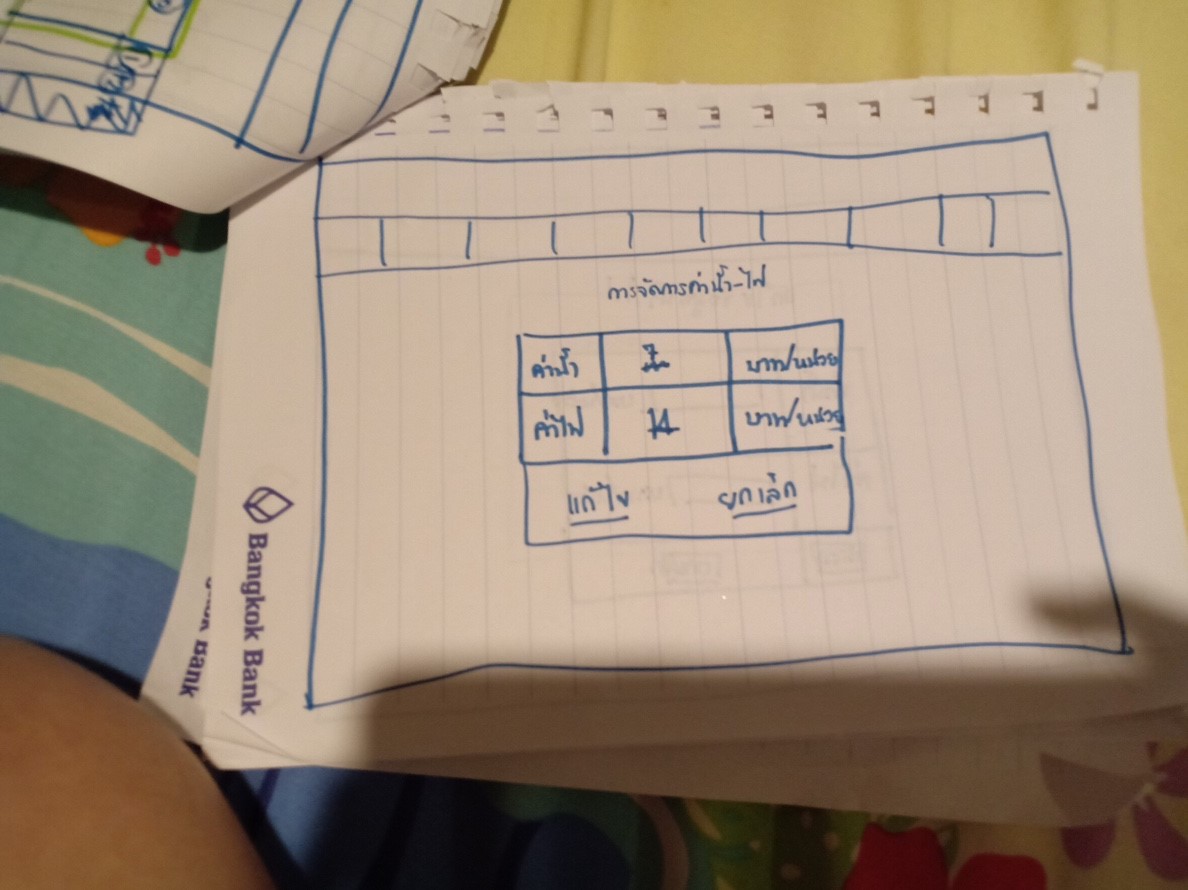 การจัดการค่าน้ำ-ไฟ
ค่าน้ำ บาท/หน่วย
ค่าไฟ บาท/หน่วย
แก้ไข ยกเลิก
Bangkok Bank
Bank